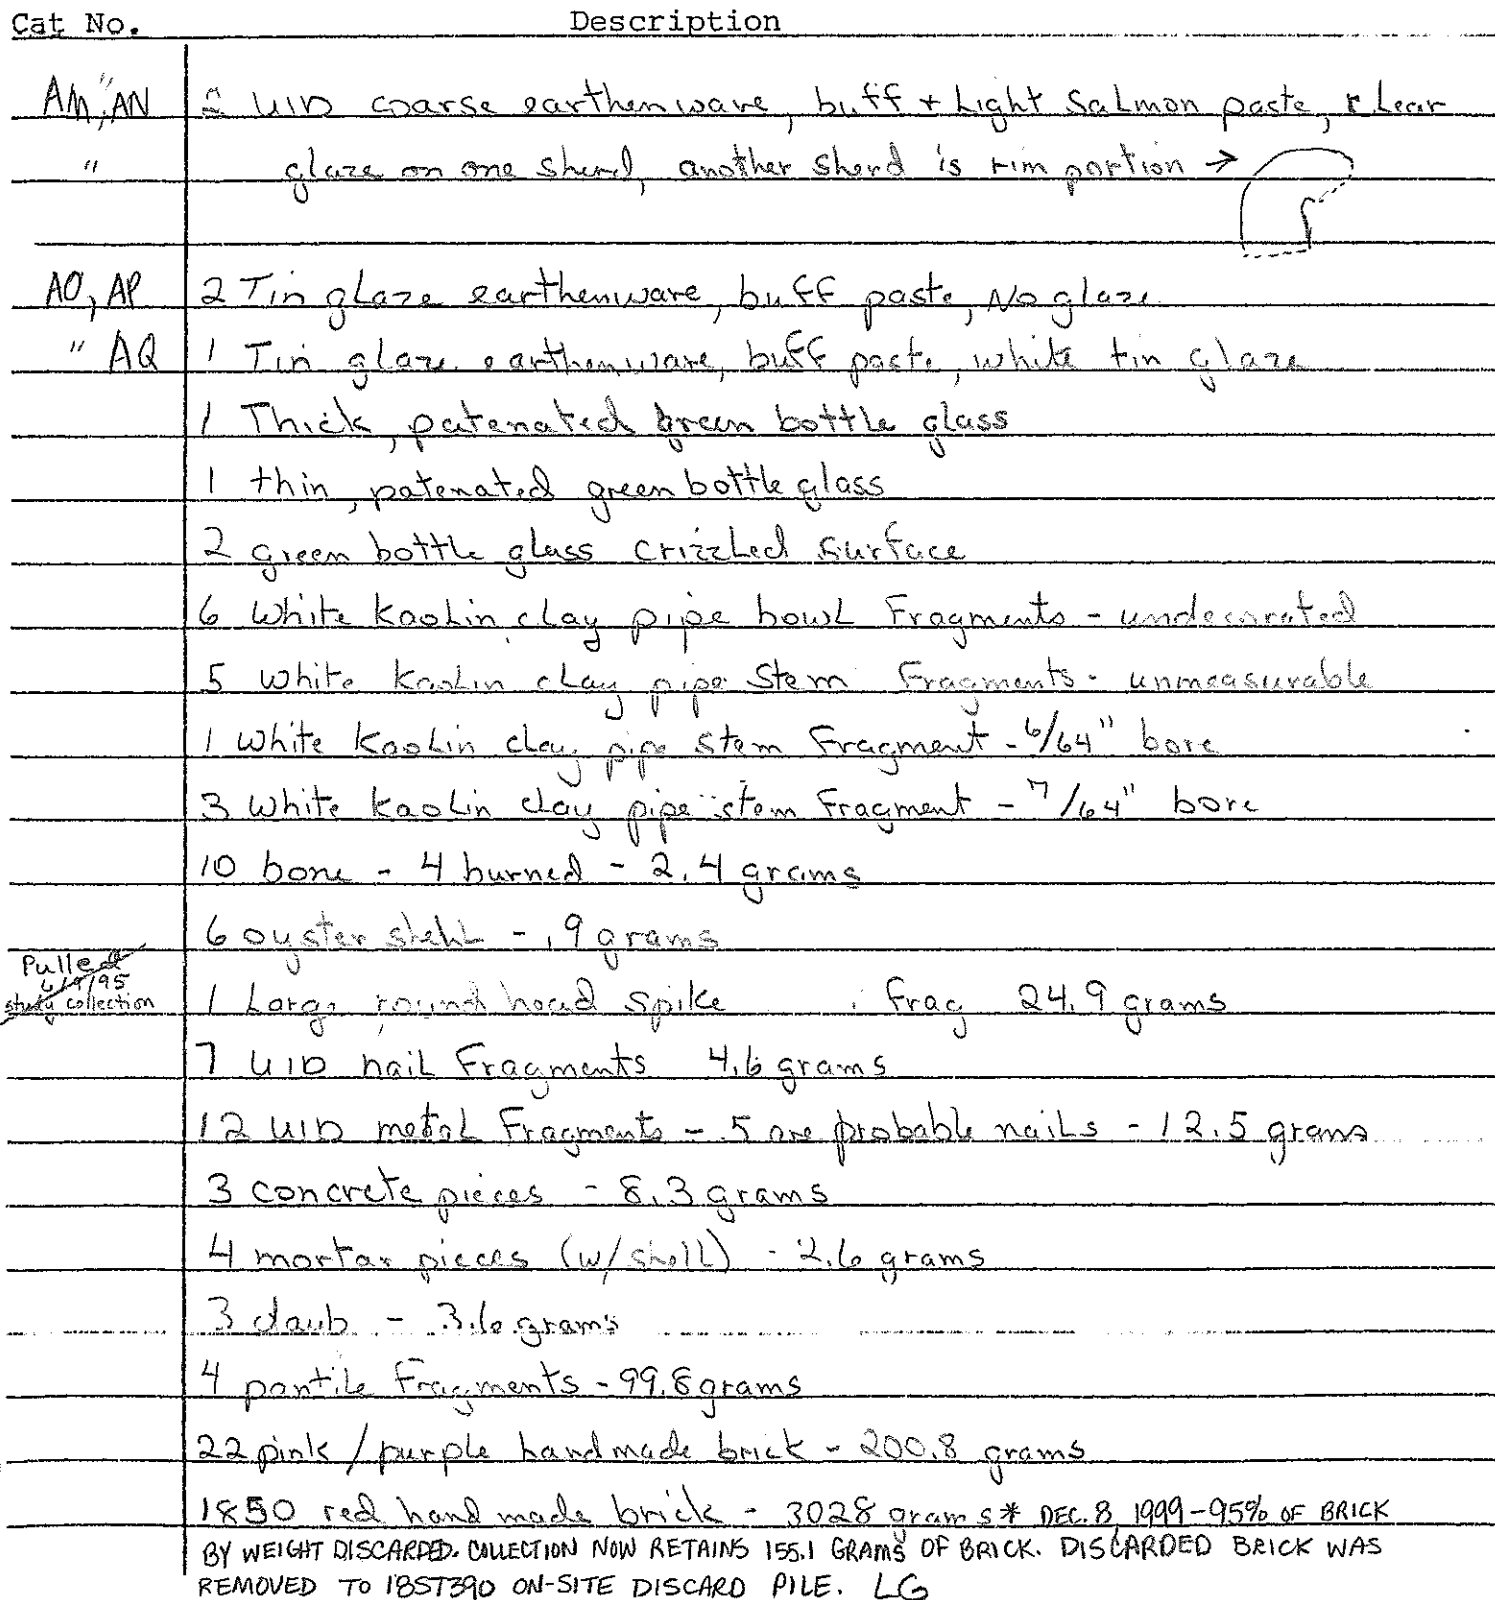 Cat No. Description
AM, AN 2 UID coarse earthenware, buff + Light Salmon paste, clear
" glaze on one sherd, another sherd is rim portion →
AO, AP 2 Tin glaze earthenware, buff paste, No glaze
" AQ 1 Tin glaze earthenware, buff paste, white tin glaze
1 Thick, patenated green bottle glass
1 thin, patenated green bottle glass
2 green bottle glass crizzled surface
6 White kaolin clay pipe bowl Fragments - undecorated
5 White kaolin clay pipe Stem Fragments - unmeasurable
1 White kaolin clay pipe stem Fragment - 6/64" bore
3 White kaolin clay pipe stem Fragment - 7/64" bore
10 bone - 4 burned - 2.4 grams
6 oyster shell - .9 grams
Pulled
6/9/95
study collection 1 Large round head spike frag 24.9 grams
7 UID nail Fragments 4.6 grams
12 UID metal Fragments - 5 are probable nails - 12.5 grams
3 concrete pieces - 8.3 grams
4 mortar pieces (w/shell) - 2.6 grams
3 daub - 3.6 grams
4 pantile Fragments - 99.8 grams
22 pink/purple handmade brick - 200.8 grams
1850 red hand made brick - 3028 grams * DEC. 8, 1999 - 95% OF BRICK
BY WEIGHT DISCARDED. COLLECTION NOW RETAINS 155.1 GRAMS OF BRICK. DISCARDED BRICK WAS
REMOVED TO 18ST390 ON-SITE DISCARD PILE. LG